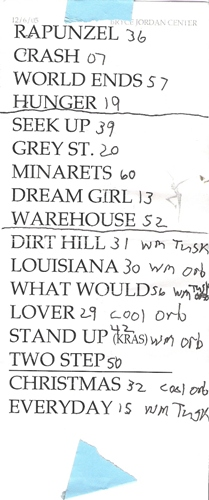 12/6/05 BRYCE JORDAN CENTER
RAPUNZEL 36
CRASH 07
WORLD ENDS 57
HUNGER 19
SEEK UP 39
GREY ST. 20
MINARETS 60
DREAM GIRL 13
WAREHOUSE 52
DIRT HILL 31 WM TUSK
LOUISIANA 30 WM Orb
WHAT WOULD 56 WM TUSK Orb
LOVER 29 COOL Orb
STAND UP (KRAS) 42 WM Orb
TWO STEP 50
CHRISTMAS 32 COOL Orb
EVERYDAY 15 WM TUSK